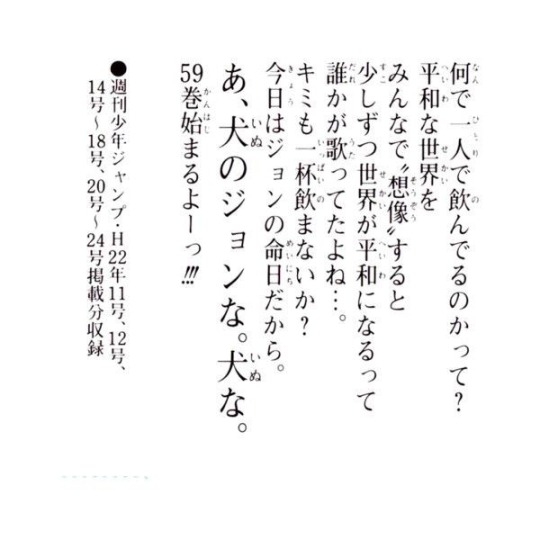 何で一人で飲んでるのかって?
平和な世界を
みんなで〝想像〟すると
少しずつ世界が平和になるって
誰かが歌ってたよね…。
キミも一杯飲まないか?
今日はジョンの命日だから。
あ、犬のジョンな。犬な。
59巻始まるよーっ!!!
●週刊少年ジャンプ・H22年11号、12号、
14号〜18号、20号〜24号掲載分収録